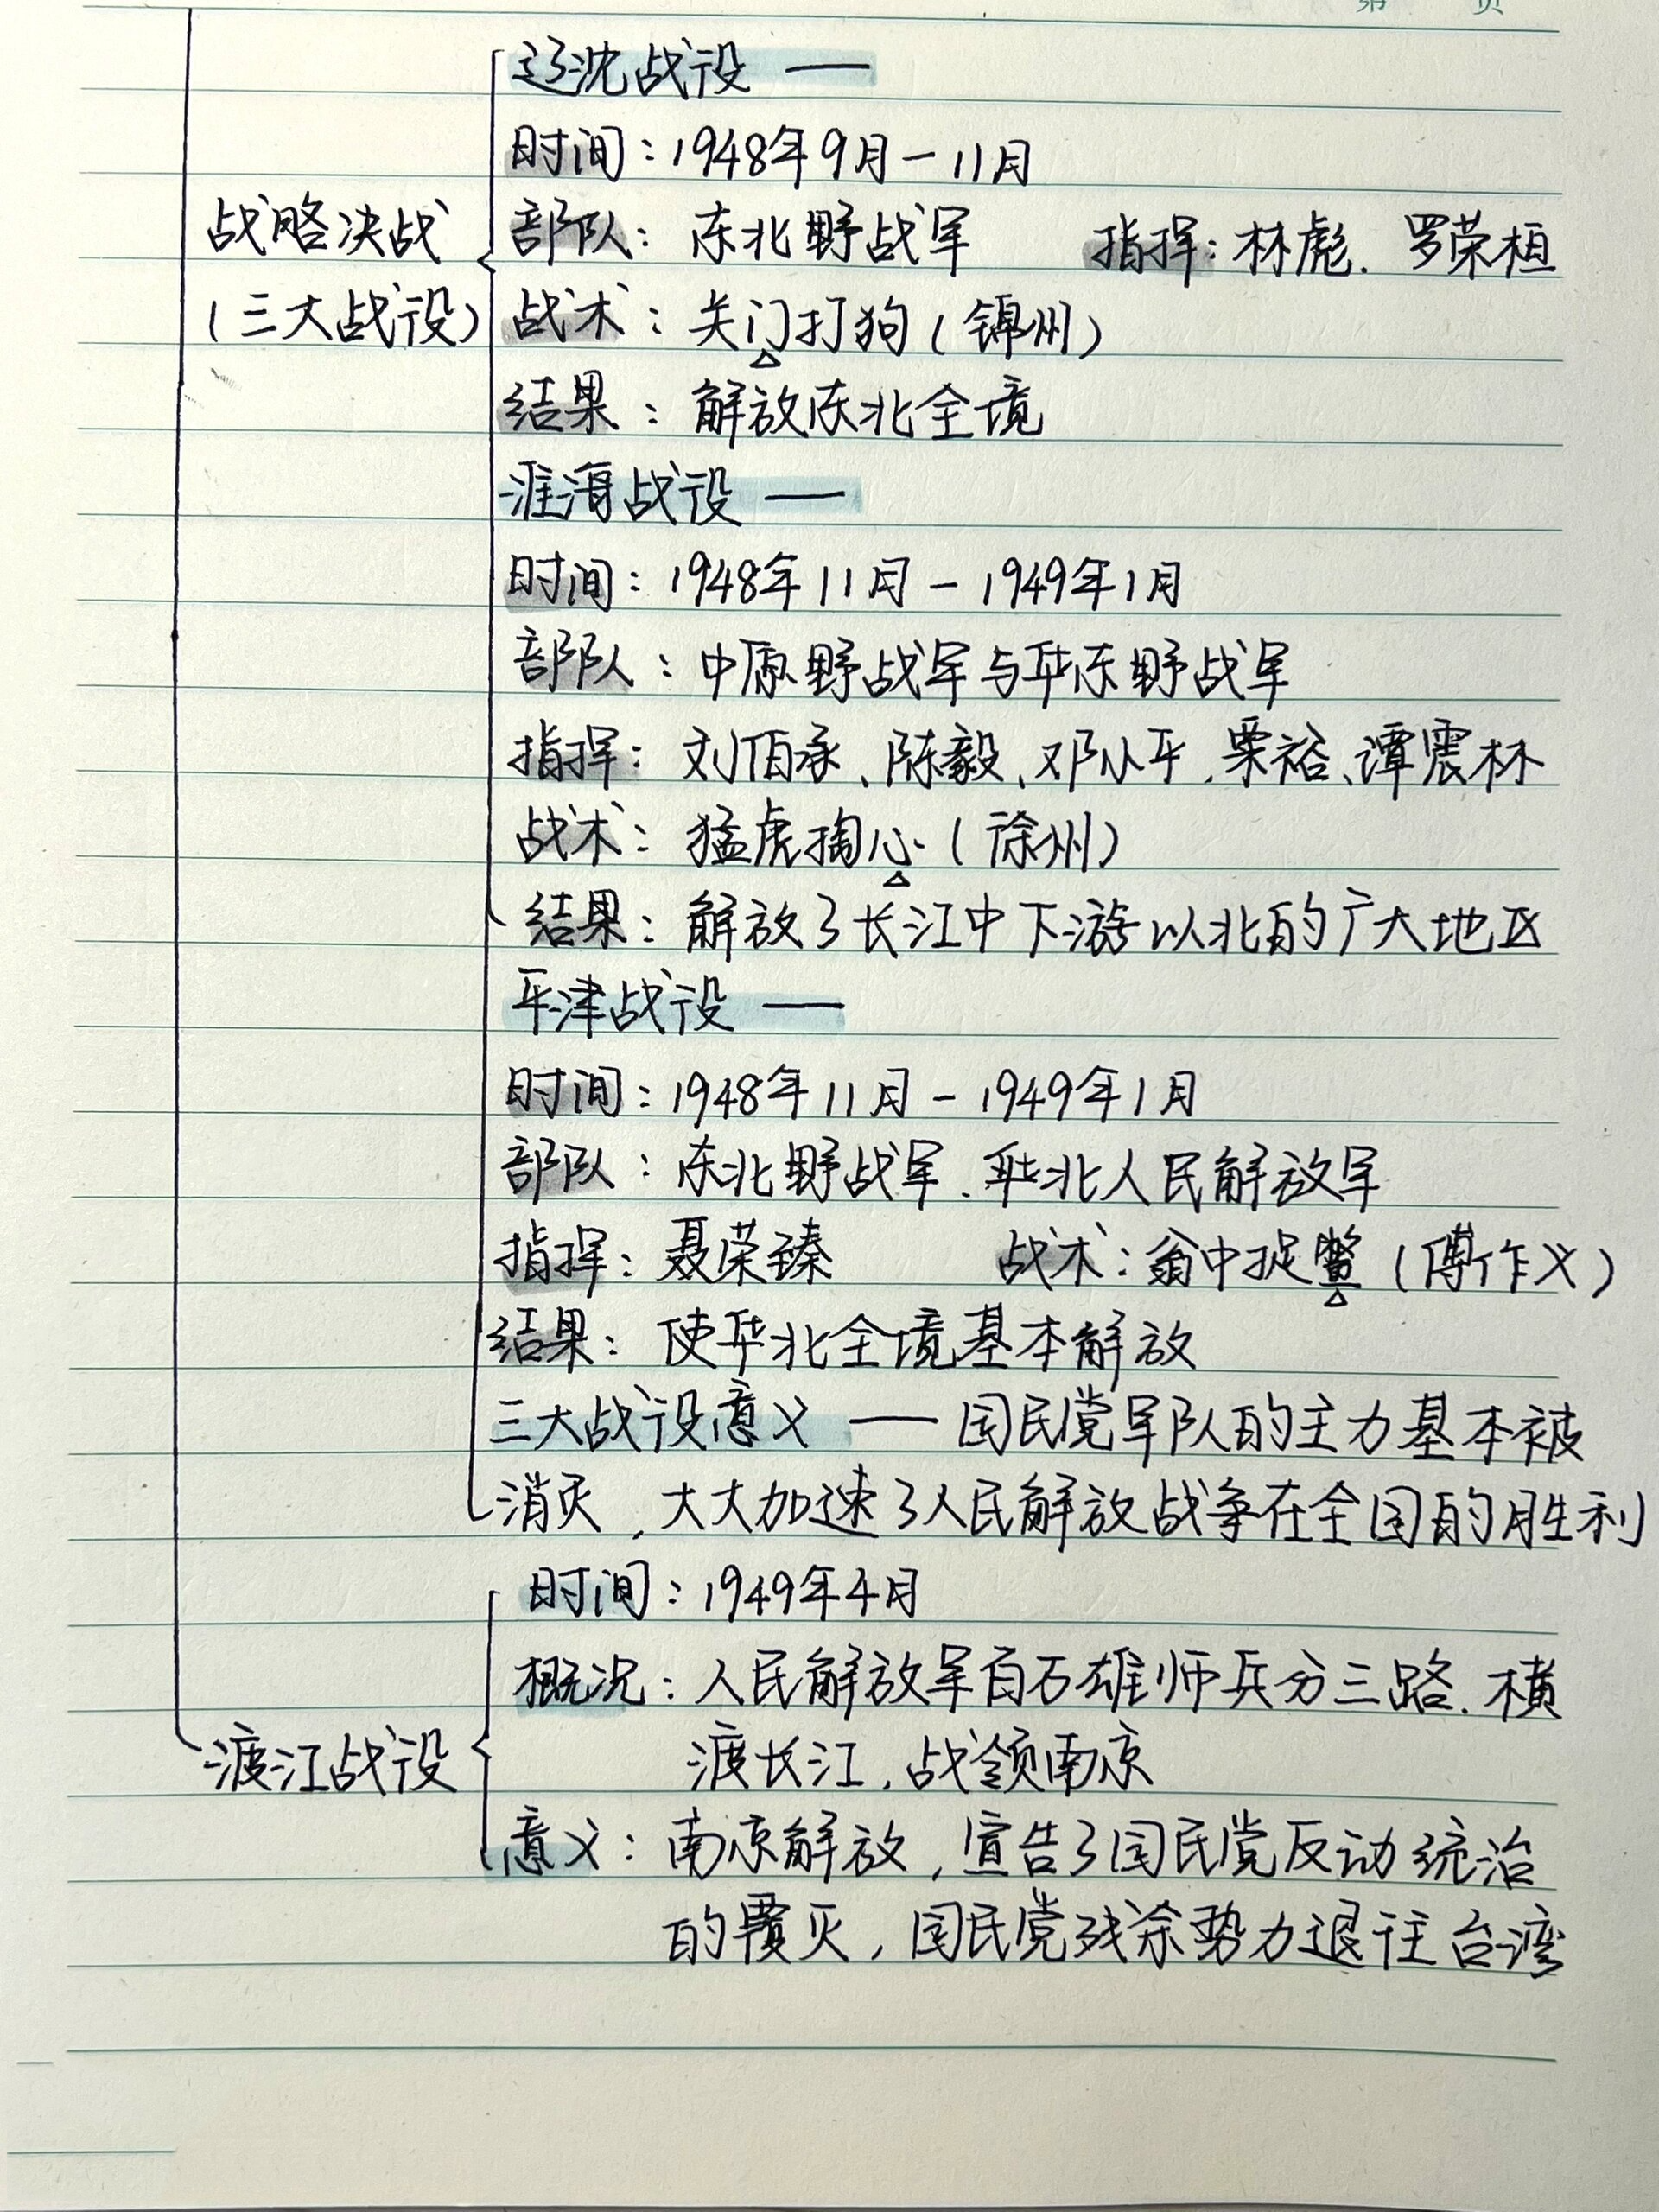 第 页
辽沈战役 ——
时间：1948年9月－11月
战略决战
部队：东北野战军 指挥：林彪．罗荣桓
（三大战役）
战术：关门打狗（锦州）
结果：解放东北全境
淮海战役 ——
时间：1948年11月－1949年1月
部队：中原野战军与华东野战军
指挥：刘伯承、陈毅、邓小平、粟裕、谭震林
战术：猛虎掏心（徐州）
结果：解放了长江中下游以北的广大地区
平津战役 ——
时间：1948年11月－1949年1月
部队：东北野战军、华北人民解放军
指挥：聂荣臻 战术：瓮中捉鳖（傅作义）
结果：使华北全境基本解放
三大战役意义 —— 国民党军队的主力基本被
消灭，大大加速了人民解放战争在全国的胜利
时间：1949年4月
概况：人民解放军百万雄师兵分三路．横
渡江战役
渡长江，战领南京
意义：南京解放，宣告了国民党反动统治
的覆灭，国民党残余势力退往台湾